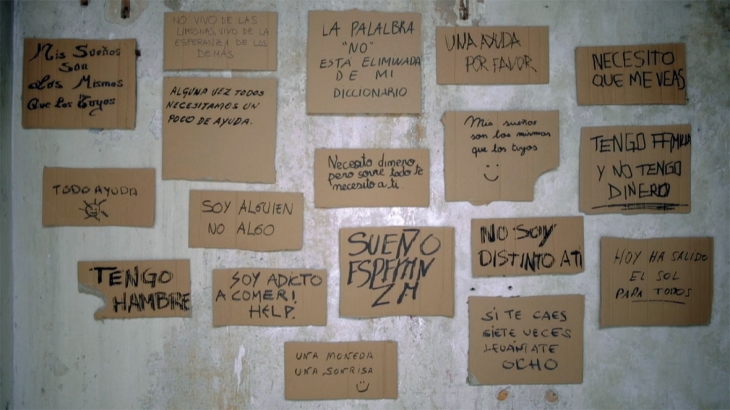 Mis Sueños
Son
Los Mismos
Que Los Tuyos
NO VIVO DE LAS
LIMOSNAS, VIVO DE LA
ESPERANZA DE LOS
DEMÁS
LA PALALBRA
"NO"
ESTÁ ELIMINADA
DE MI
DICCIONARIO
UNA AYUDA
POR FAVOR
NECESITO
QUE ME VEAS
ALGUNA VEZ TODOS
NECESITAMOS UN
POCO DE AYUDA.
Mis sueños
son los mismos
que los tuyos
TENGO FAMILIA
Y NO TENGO
DINERO
Necesito dinero,
pero sobre todo te
necesito a ti
TODO AYUDA
SOY ALGUIEN
NO ALGO
SUEÑO
ESPERAN
ZA
NO SOY
DISTINTO A TI
HOY HA SALIDO
EL SOL
PARA TODOS
TENGO
HAMBRE
SOY ADICTO
A COMER!
HELP.
SI TE CAES
SIETE VECES
LEVÁNTATE
OCHO
UNA MONEDA
UNA SONRISA